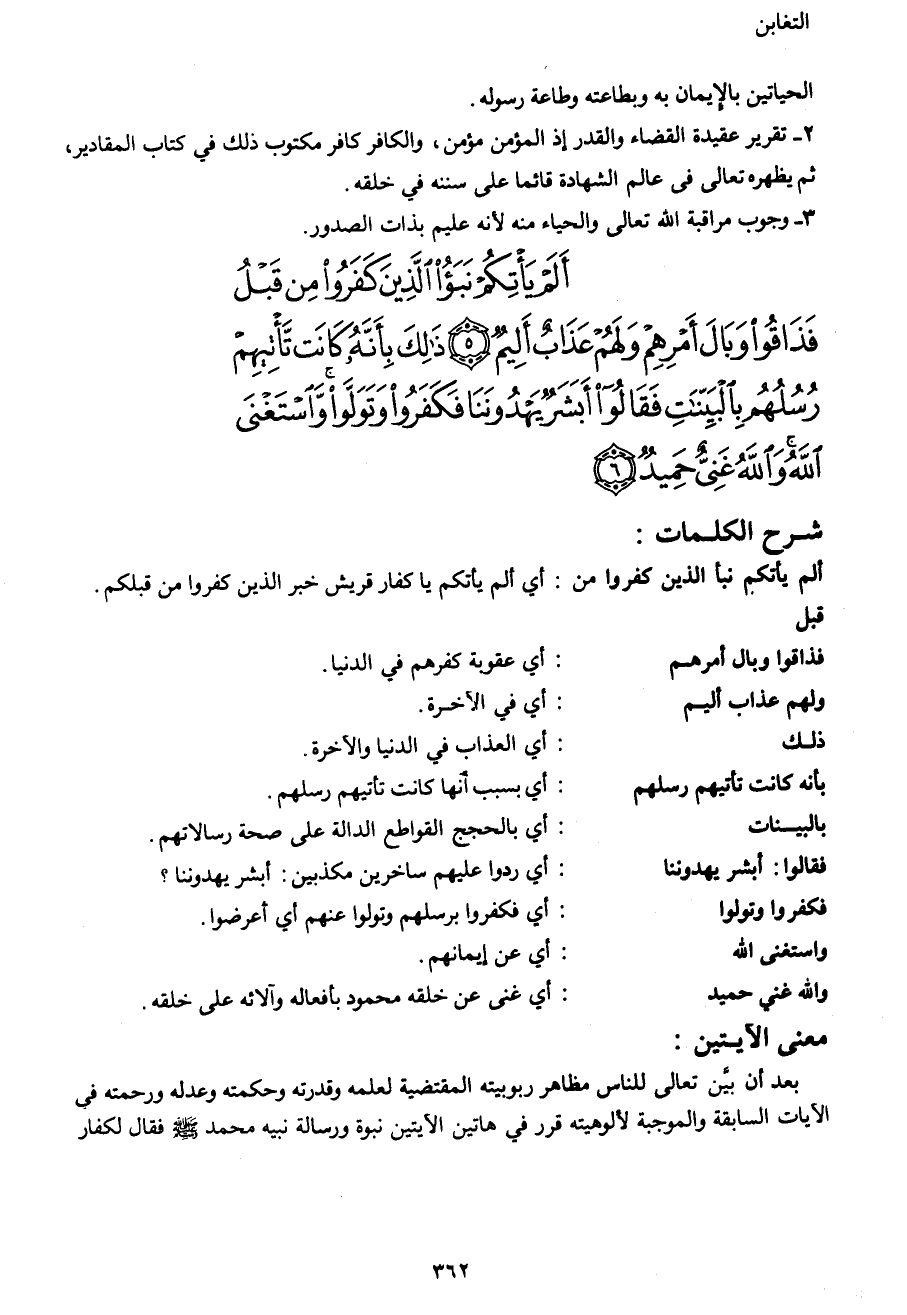 التغابن
الحياتين بالإيمان به وبطاعته وطاعة رسوله.
٢ـ تقرير عقيدة القضاء والقدر إذ المؤمن مؤمن، والكافر كافر مكتوب ذلك في كتاب المقادير،
ثم يظهره تعالى فى عالم الشهادة قائما على سننه في خلقه.
٣ـ وجوب مراقبة الله تعالى والحياء منه لأنه عليم بذات الصدور.
أَلَمْ يَأْتِكُمْ نَبَؤُا۟ ٱلَّذِينَ كَفَرُوا۟ مِن قَبْلُ
فَذَاقُوا۟ وَبَالَ أَمْرِهِمْ وَلَهُمْ عَذَابٌ أَلِيمٌ ٥ ذَٰلِكَ بِأَنَّهُۥ كَانَت تَّأْتِيهِمْ
رُسُلُهُم بِٱلْبَيِّنَٰتِ فَقَالُوٓا۟ أَبَشَرٌ يَهْدُونَنَا فَكَفَرُوا۟ وَتَوَلَّوا۟ ۚ وَّٱسْتَغْنَى
ٱللَّهُ ۚ وَٱللَّهُ غَنِىٌّ حَمِيدٌ ٦
شـرح الكلـمات :
ألم يأتكم نبأ الذين كفروا من : أي ألم يأتكم يا كفار قريش خبر الذين كفروا من قبلكم.
قبل
فذاقوا وبال أمرهـم : أي عقوبة كفرهم في الدنيا.
ولهم عذاب أليـم : أي في الآخـرة.
ذلـك : أي العذاب في الدنيا والآخرة.
بأنه كانت تأتيهم رسلهم : أي بسبب أنها كانت تأتيهم رسلهم.
بالبيـنات : أي بالحجج القواطع الدالة على صحة رسالاتهم.
فقالوا: أبشر يهدوننا : أي ردوا عليهم ساخرين مكذبين: أبشر يهدوننا ؟
فكفروا وتولوا : أي فكفروا برسلهم وتولوا عنهم أي أعرضوا.
واستغنى الله : أي عن إيمانهم.
والله غني حميد : أي غنى عن خلقه محمود بأفعاله وآلائه على خلقه.
معنى الآيـتين :
بعد أن بيَّن تعالى للناس مظاهر ربوبيته المقتضية لعلمه وقدرته وحكمته وعدله ورحمته في
الآيات السابقة والموجبة لألوهيته قرر في هاتين الآيتين نبوة ورسالة نبيه محمد ﷺ فقال لكفار
٣٦٢